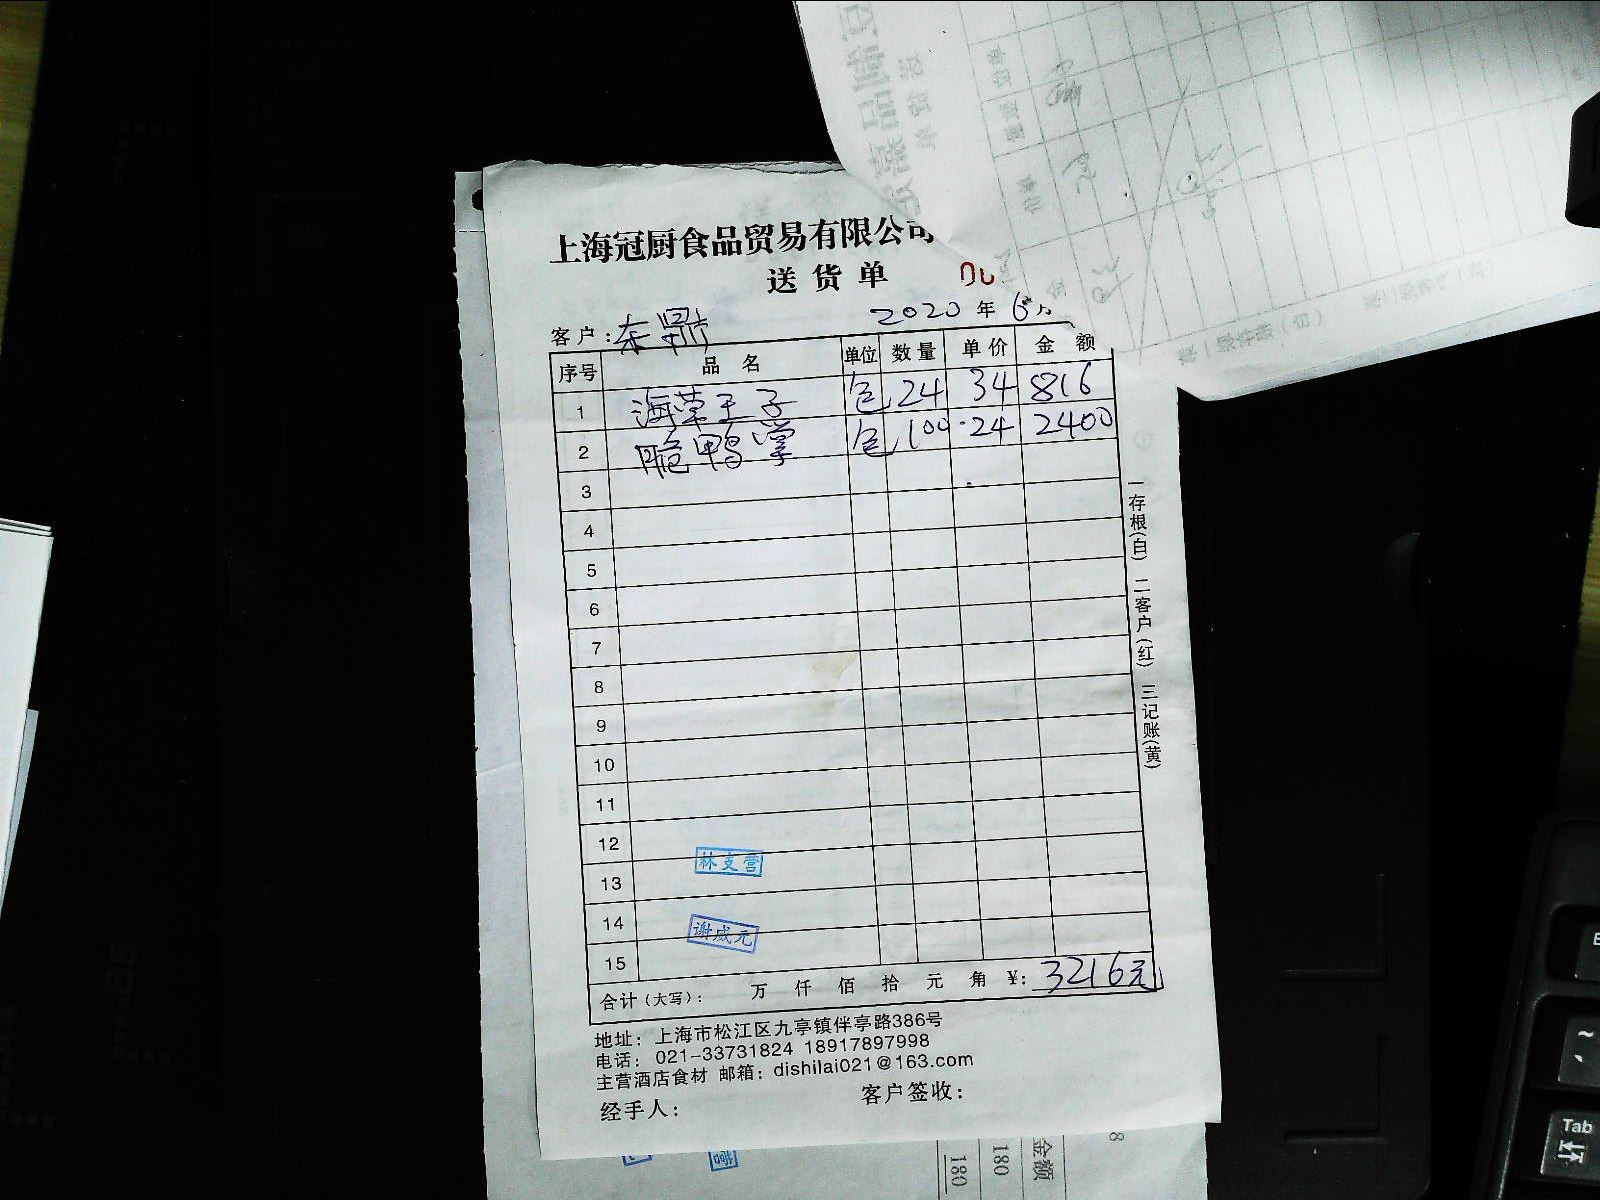 上海冠厨食品贸易有限公司
送货单
客户：东鼎 2020年6月
序号 品名 单位 数量 单价 金额
1 海菜王子 包 24 34 816
2 脆鸭掌 包 100 24 2400
3
4
5
6
7
8
9
10
11
12
林支营
13
14
谢咸元
15
合计（大写）： 万 仟 佰 拾 元 角 ¥：3216元
地址：上海市松江区九亭镇伴亭路386号
电话：021-33731824 18917897998
主营酒店食材 邮箱：dishilai021@163.com
经手人： 客户签收：
一存根(白) 二客户(红) 三记账(黄)
金额
180
180
8
Tab